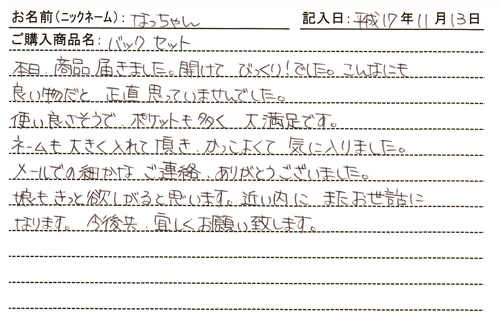 お名前(ニックネーム): なっちゃん 記入日: 平成17年11月13日
ご購入商品名: バック セット
本日 商品 届きました。開けて びっくり！でした。こんなにも
良い物だと 正直 思っていませんでした。
使い良さそうで ポケットも多く 大満足です。
ネームも大きく入れて頂き かっこよくて 気に入りました。
メールでの細かな ご連絡 ありがとうございました。
娘もきっと欲しがると思います。近い内に またお世話に
なります。 今後共 宜しくお願い致します。